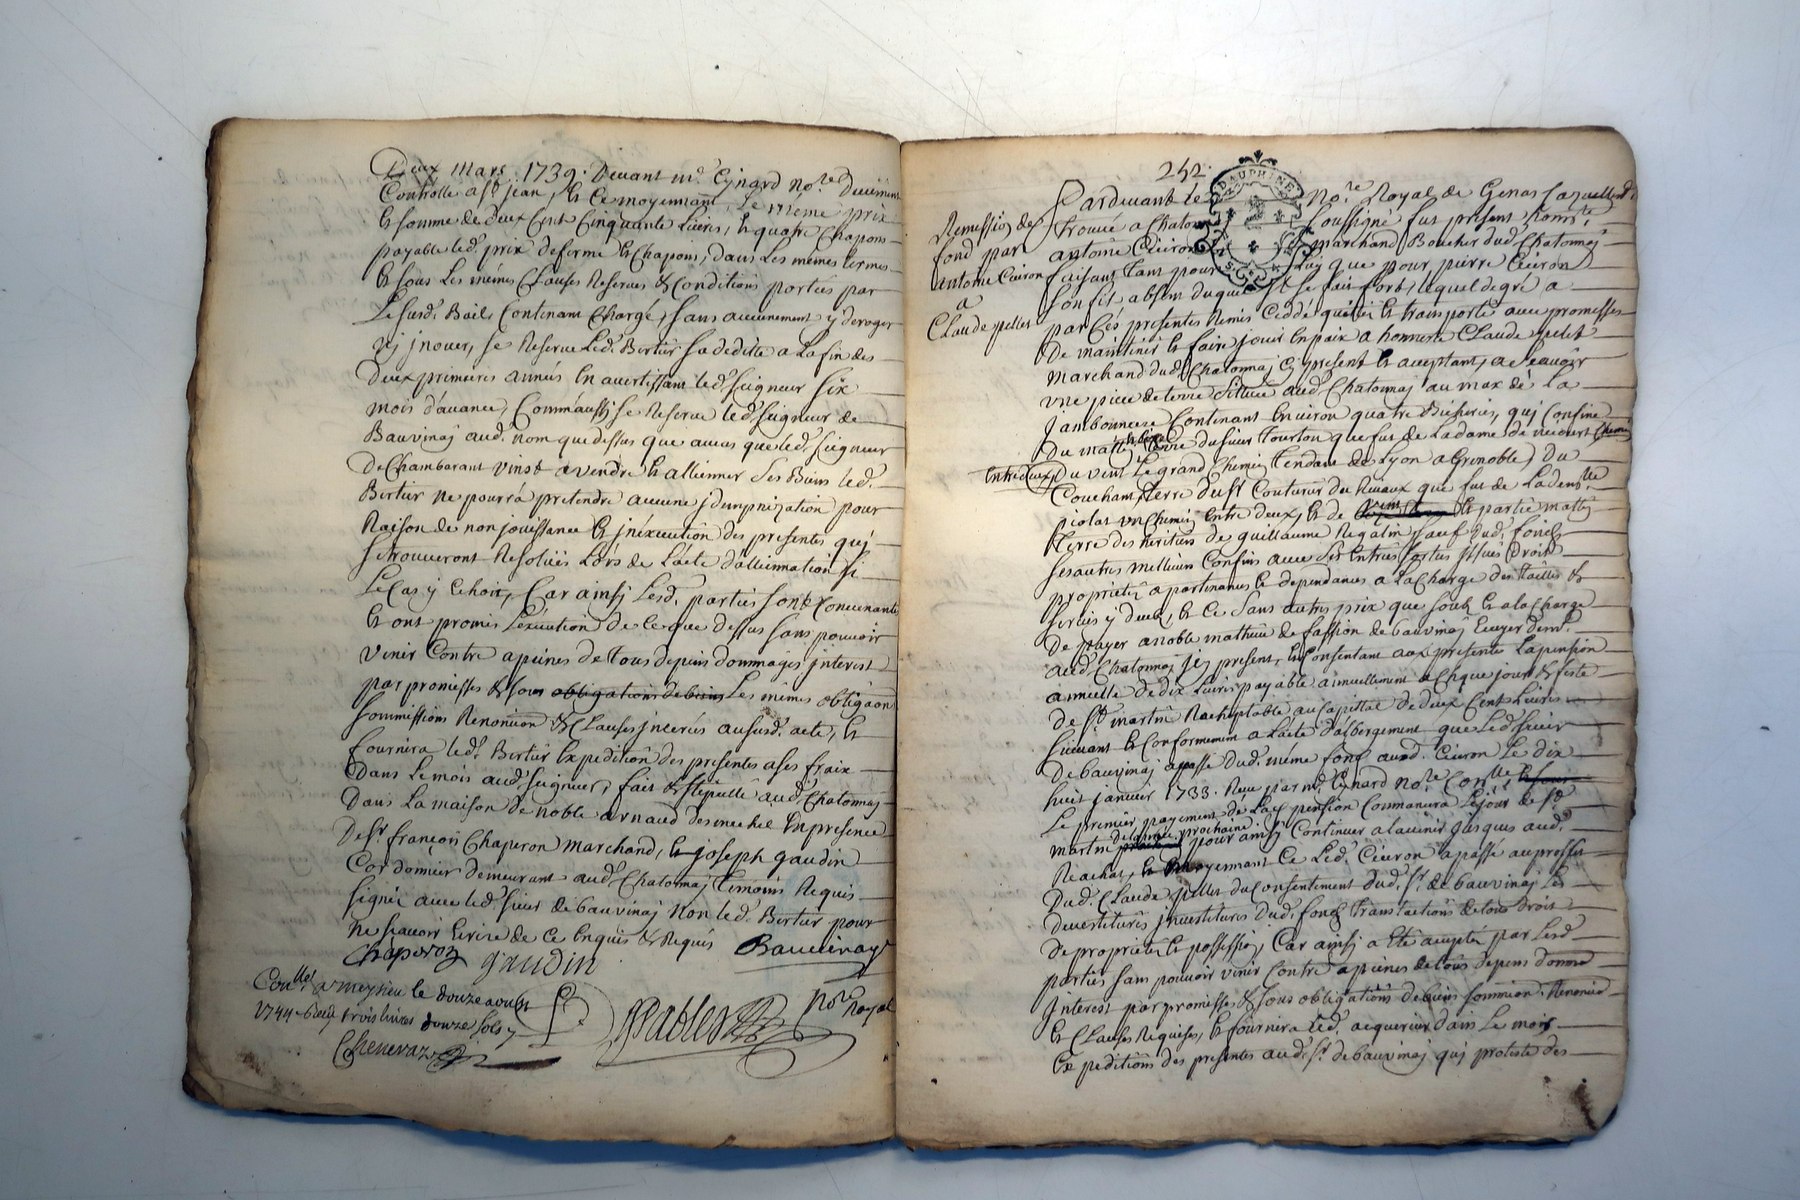 Deux mars 1739. Devant md. Eynard no.re Duëment
Controlle a st jean, & Ce moyennant Le meme prix
& somme de deux Cent Cinquante Livres, & quatre Chapons
payable led. prix de ferme & Chapons, dans Les mêmes termes
& sous Les mêmes Clauses Reserves & Conditions portées par
Le susd. Bail, Contenant Chargé, sans aucunement y deroger
ny jnover, se Reserve Led. Bertier sa deditte a La fin des
Deux premieres années En avertissant led. seigneur six
mois d'avance, Comm'aussy se Reserve led. seigneur de
Bauvinaj aud. nom que dessus que au cas que led. seigneur
De Chambarant vinst a vendre & allienner ses Biens led.
Bertier ne pourra pretendre aucune jdempnization pour
Raison de non jouissance & jnéxecution des presentes quj
se trouveront Resoluës Lors de L'acte d'alliennation si
Le Cas y Echoit, Car ainsj Lesd. parties sont Convenante
& ont promis L'exécution de Ce que dessus sans pouvoir
venir Contre a peines de tous depens dommages jnterest
par promesses & sous obligations de biens Les mêmes obligaon
soummissions Renonciaon & Clauses jncerées au susd. acte, &
fournira led. Bertier Expedition des presentes a ses fraix
Dans Le mois aud. seigneur, fait & stipullé aud. Chatonnaj
Dans La maison de noble arnaud desmechel En presence
De sr. françois Chaperon marchand, & joseph gaudin
Cordonnier demeurant aud. Chatonnaj temoins Requis
signé avec led. sieur de bauvinaj Non led. Bertier pour
Ne scavoir Ecrire de Ce Enquis & Requis
Chaperon gaudin Bauvinay
Con.llé a meysieu le douze aoust
1744 trois livres douze sols
Chenevaz
Pables No.re Royal
252.
DAUPHINE
Remission de
fond par
antoine Ceiron
a
Claude pellet
Pardevant le No.re Royal de Genas
trouvé a Chatonnaj soussigné fut present
antoine Ceiron marchand Boucher dud. Chatonnaj
faisant tant pour luy que pour pierre Ceiron
son fils absent duquel Il se fait fort, lequel de gré a
par Cés presentes Remis Ceddé quitté & transporte avec promesses
De maintenir & faire jouir En paix a honnette Claude pellet
Marchand dud. Chatonnaj Cy present & aceptant, a Scavoir
vne piece de terre situëe aud. Chatonnaj au max de La
jambonniere Contenant Environ quatre Bicherées, quj Confine
Du matin terre du sieur tourton que fut de La dame de Chemin
entre deux, Du vent Le grand Chemin tendant de Lyon a Grenoble, du
Couchant terre du sr Couturier du Rivaux que fut de La dem.lle
piolat vn Chemin Entre deux, & de & partie matin
terre des heritiers de guillaume Regalin, sauf dud. fonds
ses autres meilleurs Confins avec ses Entrées sorties Issuës Droits
proprietes apartenances & dependances a La Charge des tailles &
servis y deubs, & Ce sans autres prix que soub & a la Charge
De payer a noble mathieu de bauvinaj Ecuyer dem.t
aud. Chatonnaj jcy present, & Consentant aux presentes La pension
annuelle de dix Livres payable annuellement a Chaque jour & feste
de st. martin Racheptable au Capittal de deux Cent Livres
suivant & Conformement a L'acte d'albergement que Led. sieur
De bauvinaj a passé dud. même fond aud. Ceiron Le dix
huit janvier 1733. Reçu par md. Eynard no.re Con.llé
Le premier payement de La pension Commancera Le jour de st.
martin de l'année prochaine pour ainsj Continuer a l'avenir jusques aud.
Rachat, & moyennant Ce Led. Ceiron a passé au proffit
Dud. Claude pellet du Consentement dud. sr. de bauvinaj Les
devestitures jnvestitures dud. fond translactions de tous Droits
De proprieté & possession, Car ainsj a Eté acepté par Lesd.
parties sans pouvoir venir Contre a peines de tous depens domma
jnterest par promesses & sous obligations de biens soummion Renoncia
& Clauses Requises, & fournira led. acquereur dans Le mois
Expeditions des presentes aud. sr. de bauvinaj quj proteste des